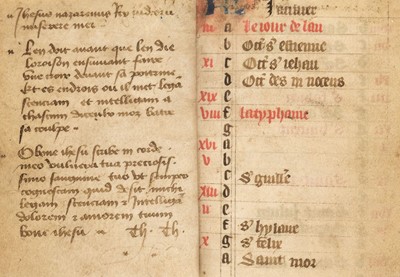 Jhesus nazarenus Rex judeoru
miserere mei
Len doit auant que len die
loroison ensuiuant faire
une croix deuant sa poitrine
Et es endrois ou il met lega
scenciam et intelligam a
chascun
sa coulpe
O bone ihesu scribe in corde
meo vulnera tua preciosis
simo sanguine tuo ut semper
cognoscam quid desit michi
legam scenciam et intelliga
dolorem et amorem tuum
bone ihesu Th. Th.
Januier
iii a Le iour de lan
b Oct. s estienne
xi c Oct. s iehan
d Oct. des innocens
xix e
viii f La typhaine
g
xvi a
v b
c s guille
xiii d
ii e
f s hylaire
x g s felix
a Saint mor